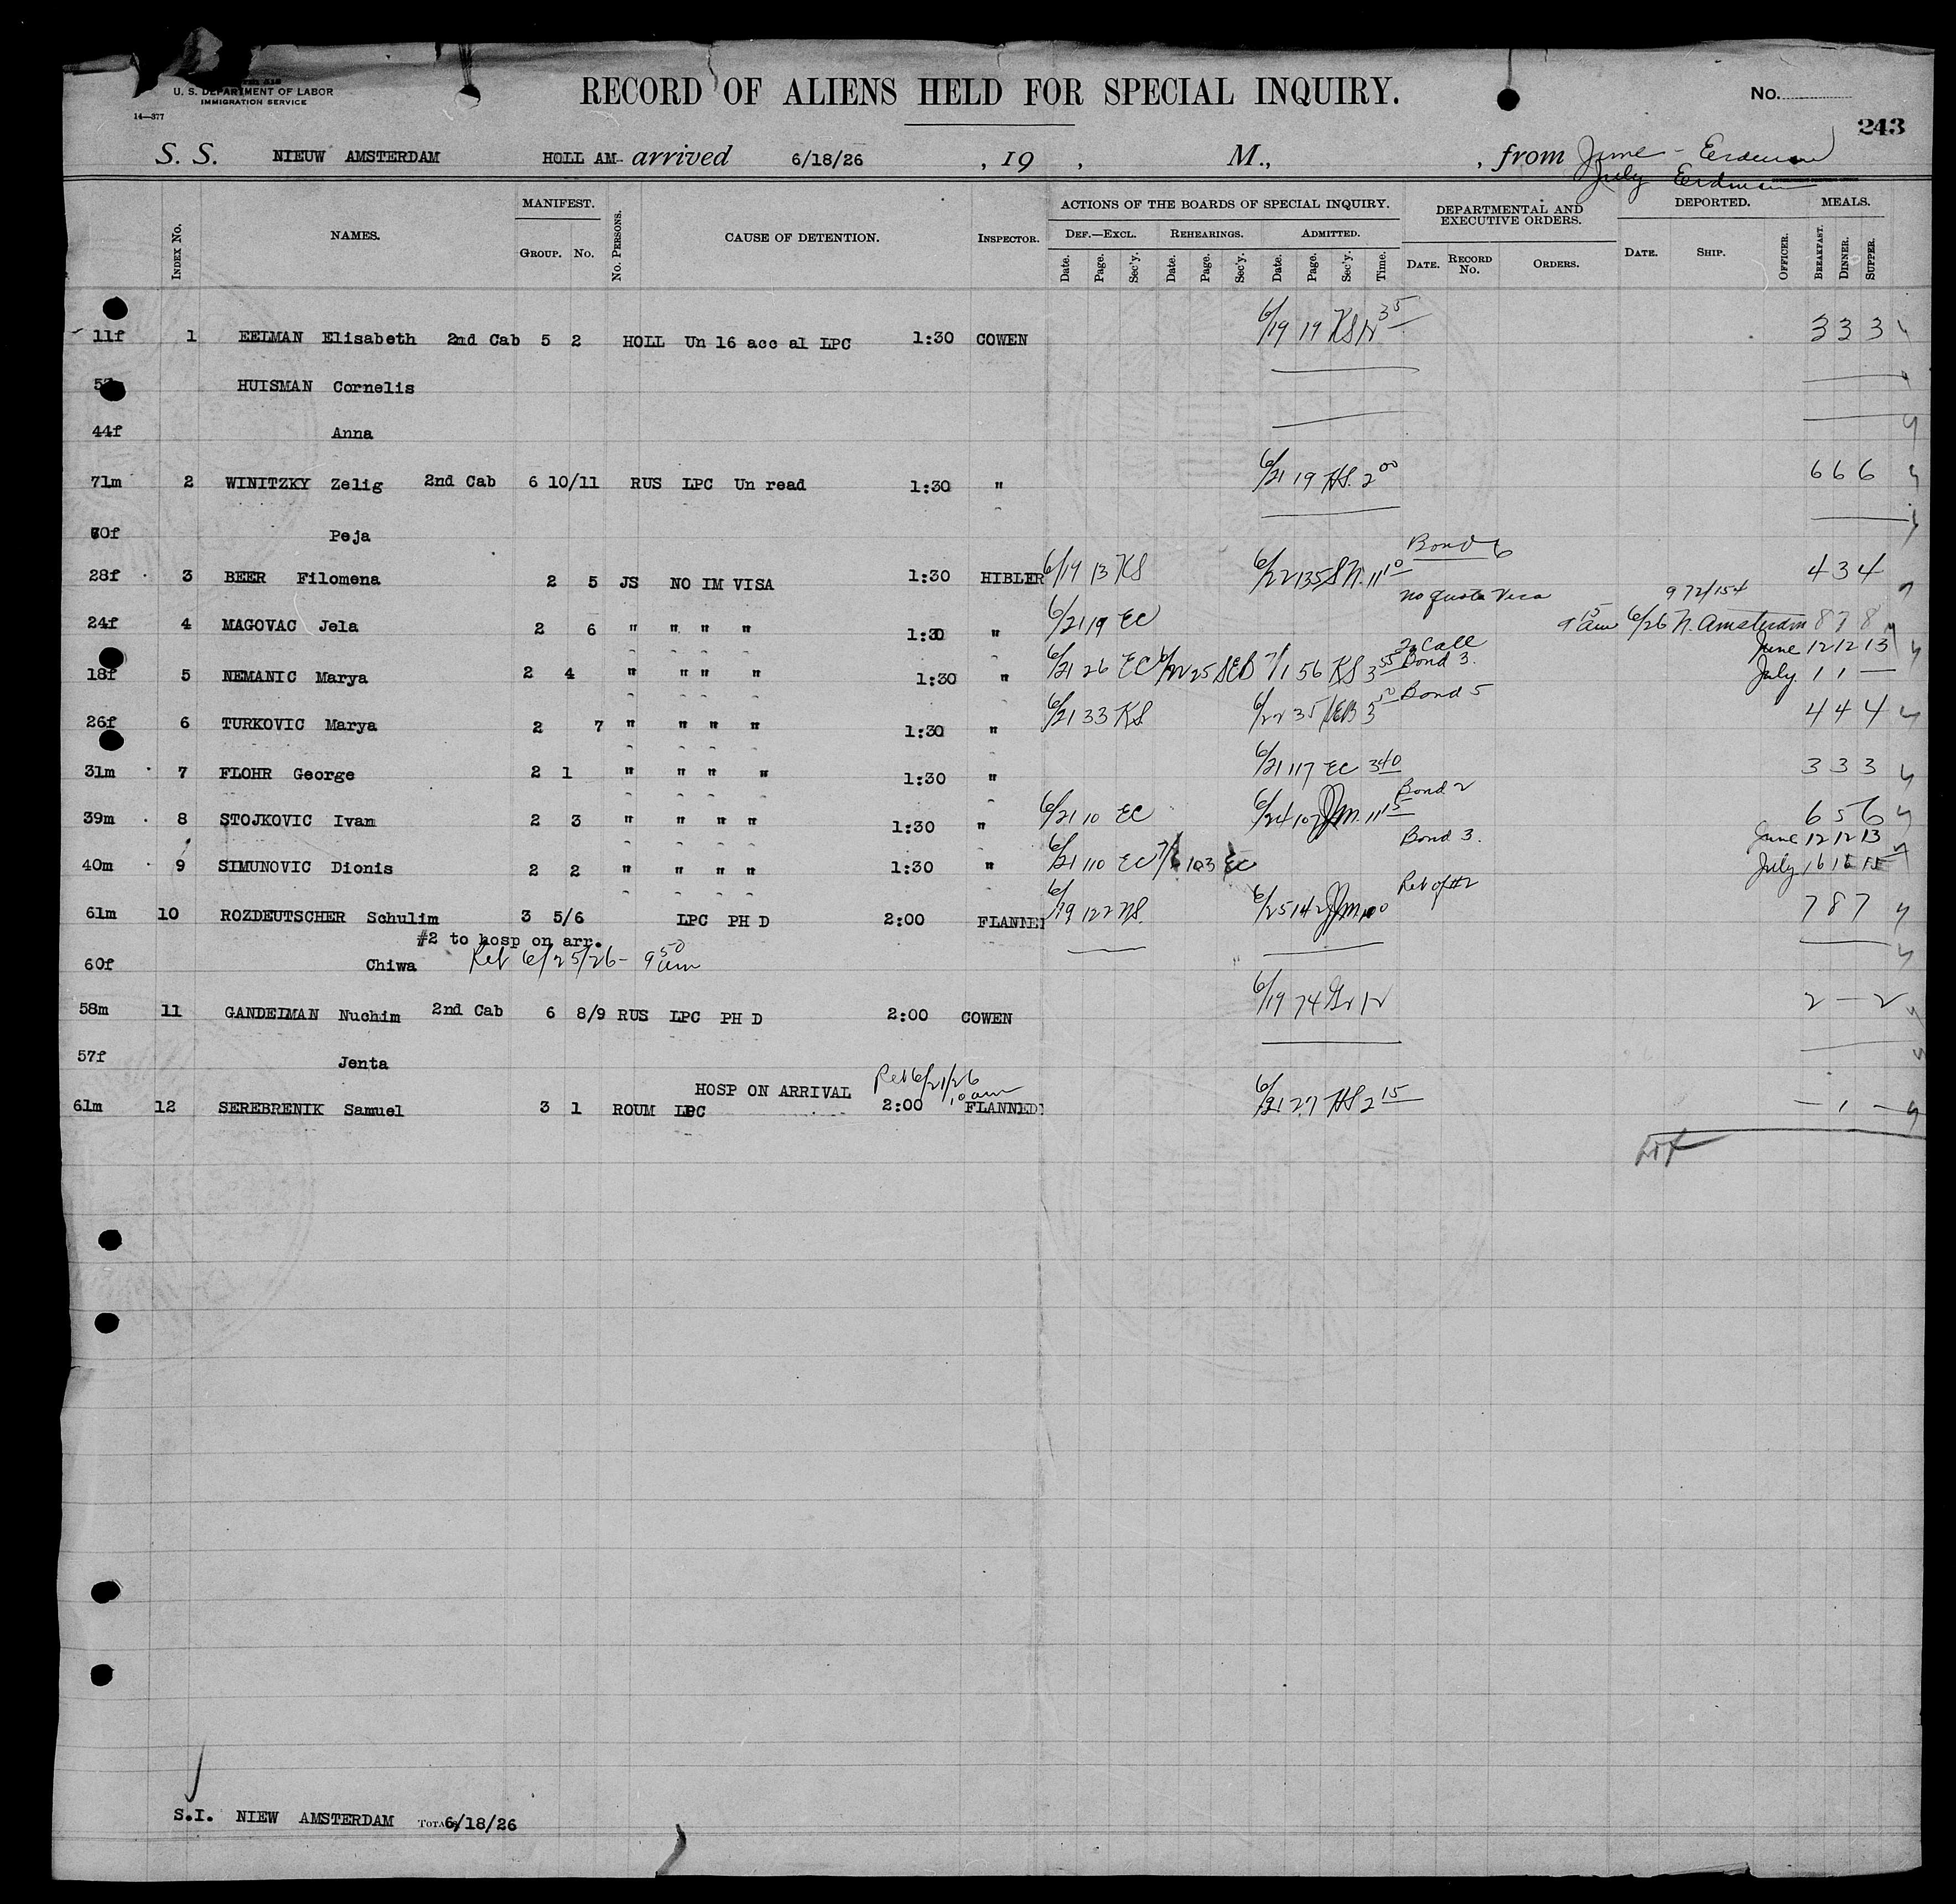 U. S. DEPARTMENT OF LABOR
IMMIGRATION SERVICE
14—377
RECORD OF ALIENS HELD FOR SPECIAL INQUIRY.
No.
243
S. S. NIEUW AMSTERDAM HOLL AM- arrived 6/18/26 , 19 , M., , from June - Erdman
July Erdman
INDEX No. NAMES. MANIFEST. GROUP. No. No. PERSONS. CAUSE OF DETENTION. INSPECTOR. ACTIONS OF THE BOARDS OF SPECIAL INQUIRY. DEF.—EXCL. Date. Page. Sec'y. REHEARINGS. Date. Page. Sec'y. ADMITTED. Date. Page. Sec'y. Time. DEPARTMENTAL AND EXECUTIVE ORDERS. DATE. RECORD No. ORDERS. DEPORTED. DATE. SHIP. OFFICER. MEALS. BREAKFAST. DINNER. SUPPER.
11f 1 EELMAN Elisabeth 2nd Cab 5 2 HOLL Un 16 acc al LPC 1:30 COWEN 6/19 19 KS 3 3 3
HUISMAN Cornelis
44f Anna
71m 2 WINITZKY Zelig 2nd Cab 6 10/11 RUS LPC Un read 1:30 " 6/21 19 2 00 6 6 6
60f Peja
Bond 6
28f 3 BEER Filomena 2 5 JS NO IM VISA 1:30 HIBLER 6/19 13 KS 6/22 135 11 10 4 3 4
no quota Visa 972/154
24f 4 MAGOVAC Jela 2 6 " " " " 1:30 " 6/21 19 EC 9 15 am 6/26 N. Amsterdam 8 7 8
2 Call June 12 12 13
18f 5 NEMANIC Marya 2 4 " " " " 1:30 " 6/21 26 EC 6/22 25 SEB 7/1 56 KS 3 55 Bond 3. July 1 1 —
Bond 5
26f 6 TURKOVIC Marya 2 7 " " " " 1:30 " 6/21 33 KS 6/22 35 4 4 4
31m 7 FLOHR George 2 1 " " " " 1:30 " 6/21 117 EC 3 40 3 3 3
Bond 2
39m 8 STOJKOVIC Ivan 2 3 " " " " 1:30 " 6/21 10 EC 6/24 11 15 6 5 6
Bond 3. June 12 12 13
40m 9 SIMUNOVIC Dionis 2 2 " " " " 1:30 " 6/21 110 EC 103 EC July 16 16 15
Ret of #2
61m 10 ROZDEUTSCHER Schulim 3 5/6 LPC PH D 2:00 FLANNE 6/19 122 NS 6/25 142 7 8 7
#2 to hosp on arr.
60f Chiwa Ret 6/25/26- 9 50 am
58m 11 GANDELMAN Nuchim 2nd Cab 6 8/9 RUS LPC PH D 2:00 COWEN 6/19 74 2 — 2
57f Jenta
HOSP ON ARRIVAL Ret 6/21/26 10 am
61m 12 SEREBRENIK Samuel 3 1 ROUM LPC 2:00 FLANNED 6/21 27 2 15 — 1 —
S.I. NIEW AMSTERDAM 6/18/26